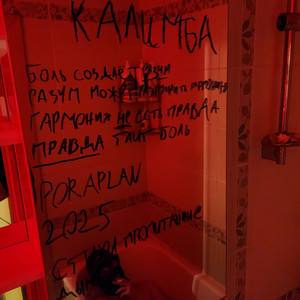 КАЛИМБА
БОЛЬ СОЗДАЁТ РАЗУМ
РАЗУМ МОЖЕТ
ГАРМОНИЯ НЕ ЕСТЬ ПРАВДА
ПРАВДА ТАИТ БОЛЬ
PORAPLAN
2025
СТИХИ ПРОПИТАНИЕ